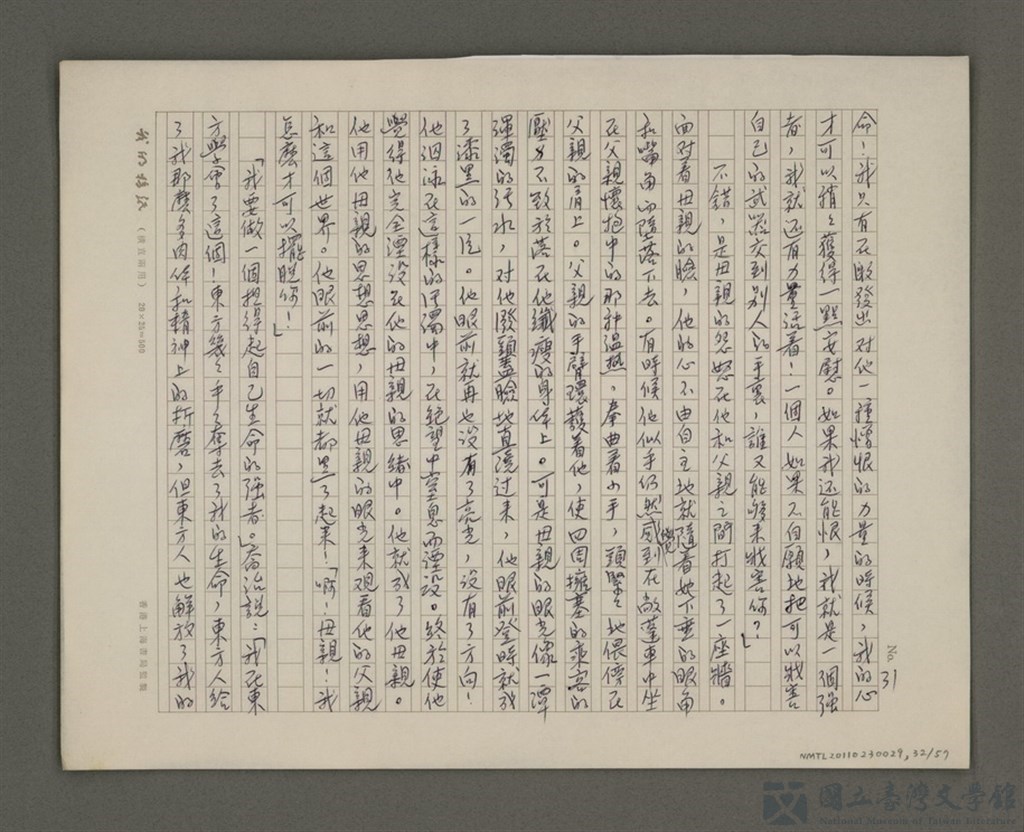 No. 31
命！我只有在散發出對他一種憎恨的力量的時候，我的心
才可以稍稍獲得一點安慰。如果我还能恨，我就是一個強
者，我就还有力量活着！一個人如果不自願地把可以戕害
自己的武器交到別人的手裏，誰又能够来戕害你？」
不錯，是母親的怨怒在他和父親之間打起了一座牆。
面对着母親的臉，他的心不由自主地就隨着她下垂的眼角
和嘴角而墮落下去。有時候他似乎仍然感覺到在敞蓬車中坐
在父親懷抱中的那种溫热。拳曲着小手，頭緊緊地偎傍在
父親的肩上。父親的手臂環護着他，使四周擁塞的乘客的
壓力不致於落在他纖瘦的身体上。可是母親的眼光像一潭
渾濁的污水，对他儍頭蓋臉地直澆过来，他眼前登時就成
了漆黑的一片。他眼前就再也没有了亮光，没有了方向！
他泅泳在這樣的渾濁中，在絕望中窒息而湮没。終於使他
覺得他完全湮没在他的母親的思緒中。他就成了他母親。
他用他母親的思想思想，用他母親的眼光来观看他的父親
和這個世界。他眼前的一切就都黑了起来！「啊！母親！我
怎麼才可以擺脱你！」
「我要做一個担得起自己生命的強者」。喬治說：「我在東
方學會了這個！東方幾乎奪去了我的生命，東方人给
了我那麼多肉体和精神上的折磨，但東方人也解放了我的
（橫直兩用） 20×25=500
香港上海書局監製
NMTL20110230029, 32/57
國立臺灣文學館
National Museum of Taiwan Literature